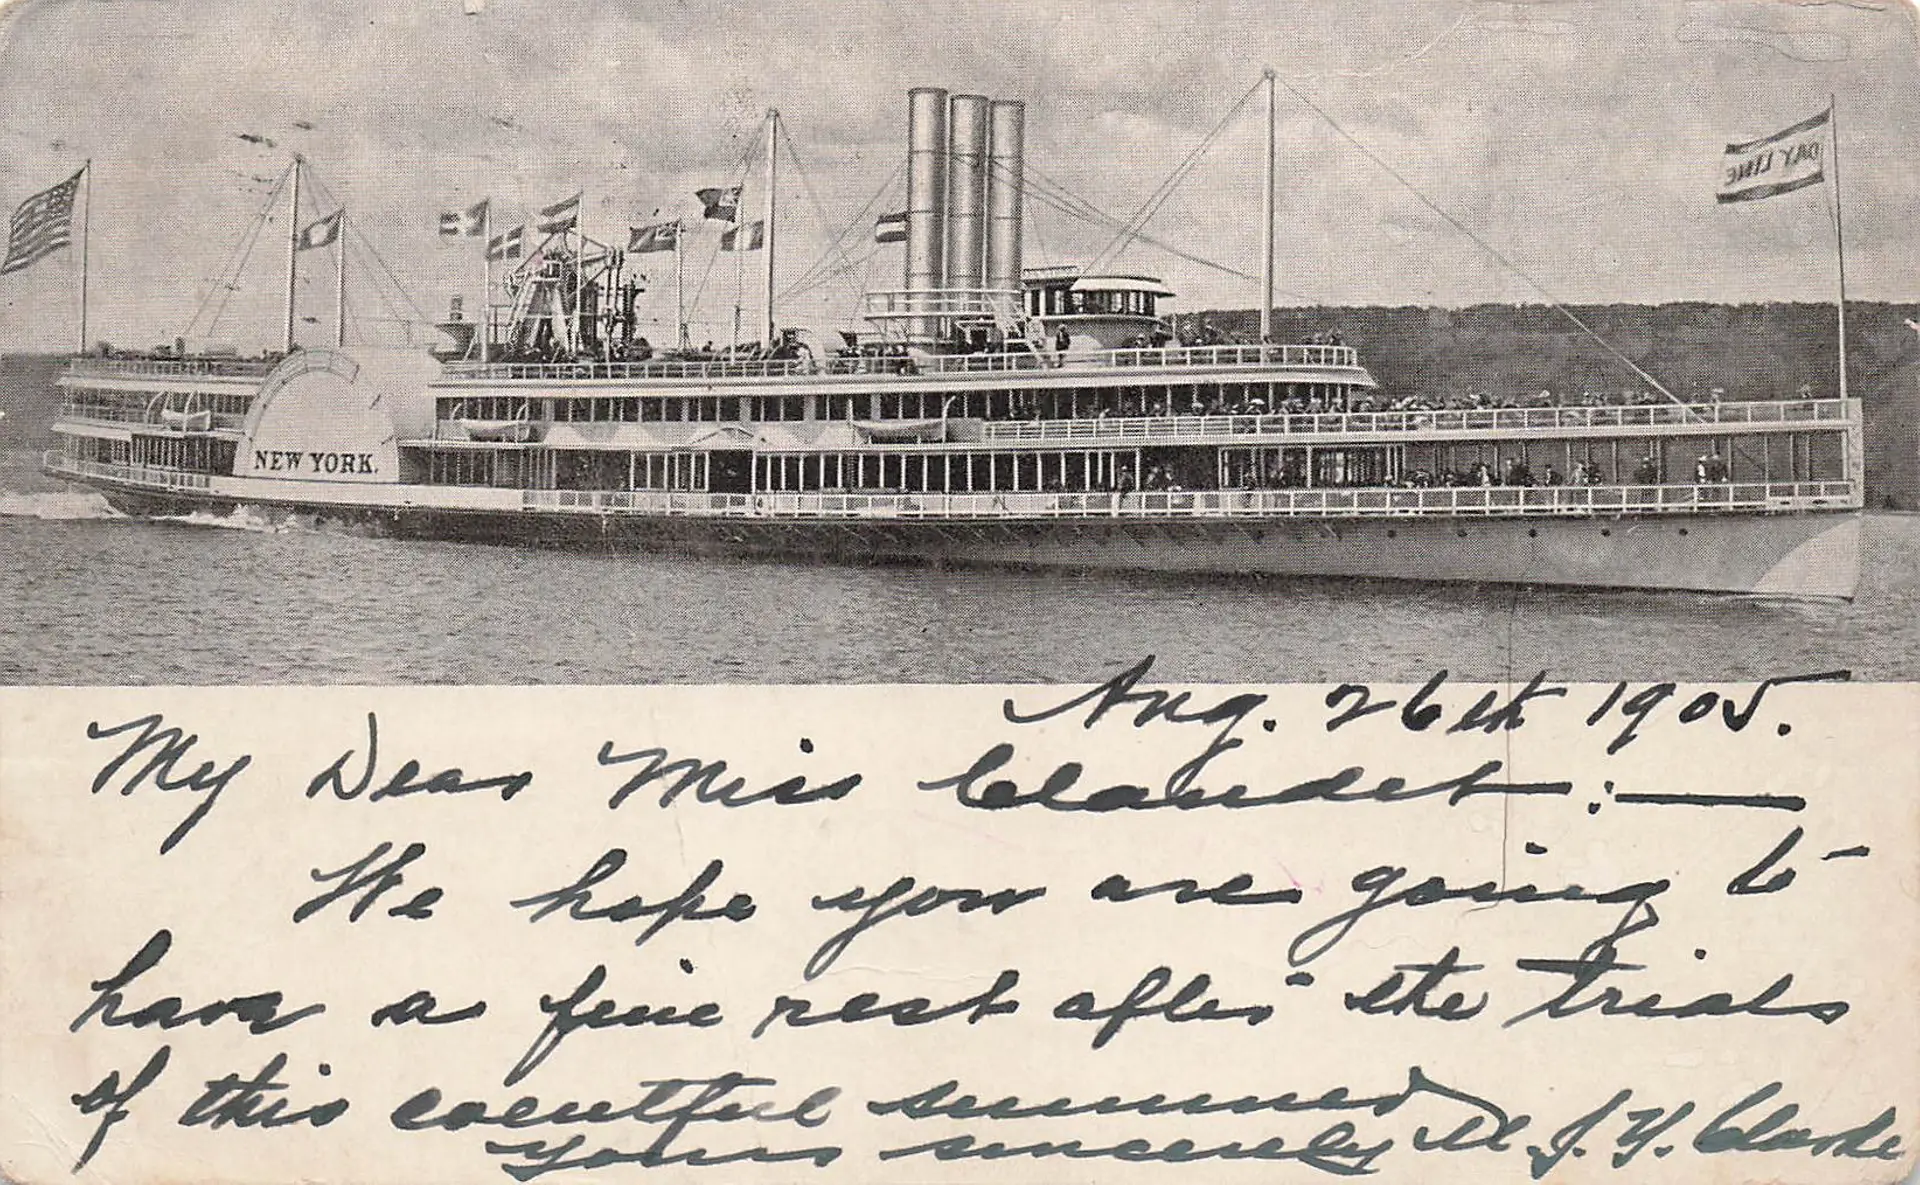 DAY LINE
NEW YORK.
Aug. 26th 1905.
My Dear Miss Claudet :—
We hope you are going to
have a fine rest after the trials
of this eventful summer
Yours sincerely M. J. Y. Clarke